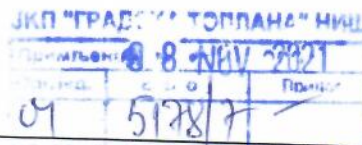 ЈКП "ГРАДСКА ТОПЛАНА" НИШ
Примљено 08 NOV 2021
04 5178/7